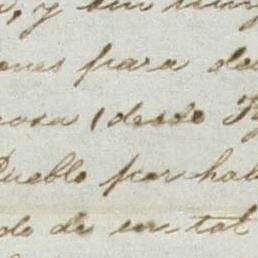 y sin
ones para
cosa (desde
Pueblo por hab
do de en tal